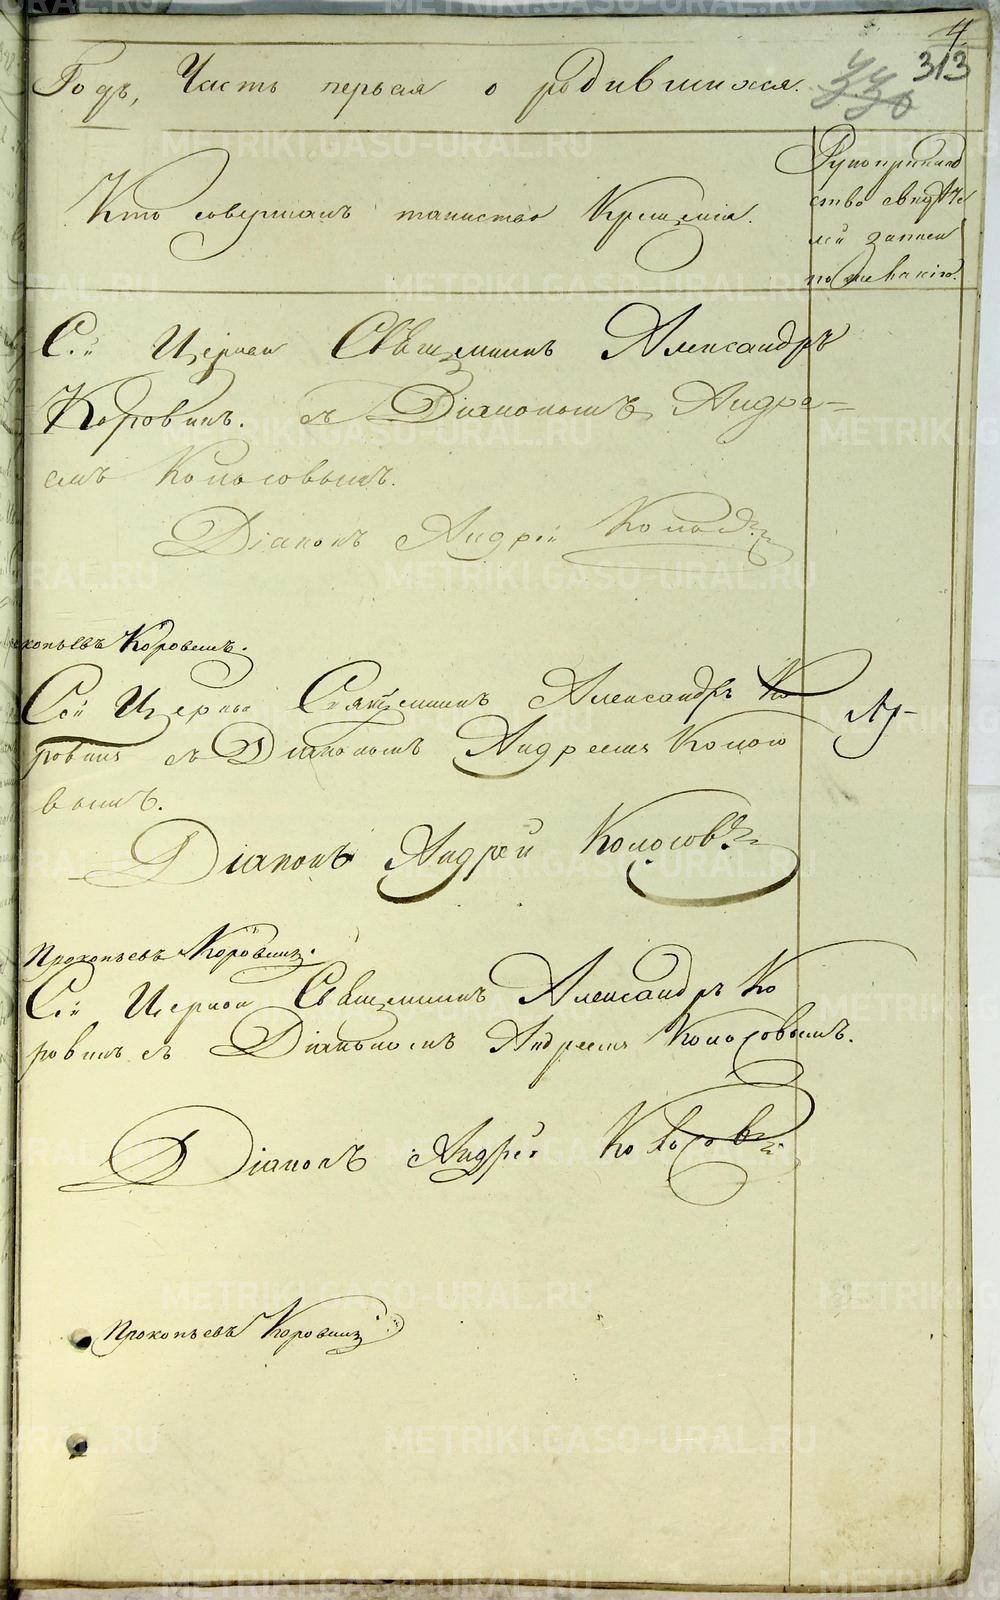 4
313
330
Годъ, Часть первая о родившихся.
Кто совершалъ таинство Крещенія.
Рукоприклад
ство свидѣте
лей записи
по желанію.
Сей Церкви Священникъ Александръ
Коровинъ. съ Діакономъ Андре-
емъ Колосовымъ.
Діаконъ Андрей Колосов
копьевъ Коровинъ.
Сей Церкви Священникъ Александръ Ко
ровинъ съ Діакономъ Андреемъ Колосо
вымъ.
Діаконъ Андрей Колосовъ
Прокопьевъ Коровинъ.
Сей Церкви Священникъ Александръ Ко
ровинъ съ Діакономъ Андреемъ Колосовымъ.
Діаконъ Андрей Колосовъ
Прокопьевъ Коровинъ
METRIKI.GASO-URAL.RU